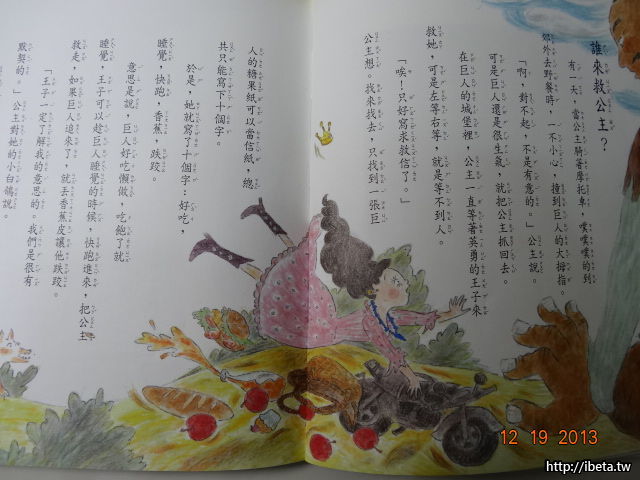 誰來救公主？
有一天，當公主騎著摩托車，噗噗噗的到
郊外去野餐時，一不小心，撞到巨人的大拇指。
「啊，對不起，不是有意的。」公主說。
可是巨人還是很生氣，就把公主抓回去。
在巨人的城堡裡，公主一直等著英勇的王子來
救她，可是左等右等，就是等不到人。
「唉！只好寫求救信了。」
公主想。找來找去，只找到一張巨
人的糖果紙可以當信紙，總
共只能寫下十個字。
於是，她就寫了十個字：好吃，
睡覺，快跑，香蕉，跌跤。
意思是說，巨人好吃懶做，吃飽了就
睡覺，王子可以趁巨人睡覺的時候，快跑進來，把公主
救走，如果巨人追來了，就丟香蕉皮讓他跌跤。
「王子一定了解我的意思的。我們是很有
默契的。」公主對她的小白鴿說。
12 19 2013
http://ibeta.tw